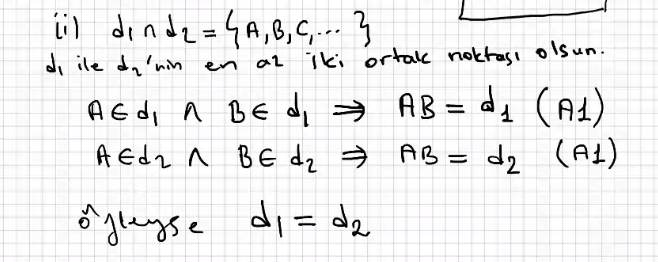 ii) d₁ ∩ d₂ = {A, B, C, ... }
d₁ ile d₂'nin en az iki ortak noktası olsun.
A ∈ d₁ ∧ B ∈ d₁ ⇒ AB = d₁ (A1)
A ∈ d₂ ∧ B ∈ d₂ ⇒ AB = d₂ (A1)
öyleyse d₁ = d₂